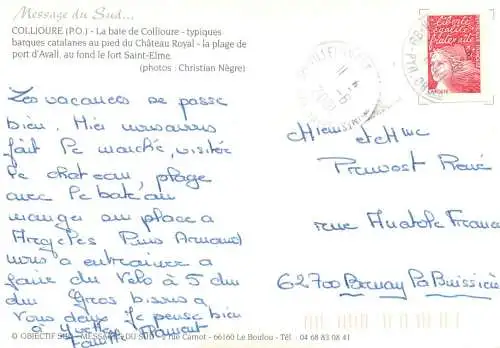 Message du Sud...
COLLIOURE (P.O.) - La baie de Collioure - typiques
barques catalanes au pied du Château Royal - la plage de
port d'Avall, au fond le fort Saint-Elme.
(photos : Christian Nègre)
Les vacances se passe
bien. Hier nous avons
fait le marché, visitée
le chateau, plage
avec le bateau
manger au place a
Argeles Puis Armand
nous a entrainer a
faire du Vélo à 5 dm
du Gros bisous a
Vous deux Je pense bien
à Yvette
Famille
Liberté
égalité
fraternité
LA POSTE
Mr et Mme
Prevost René
rue Anatole France
62700 Bruay La Buissière
© OBJECTIF SUD - MESSAGE DU SUD - rue Carnot - 66160 Le Boulou - Tél : 04 68 83 08 41